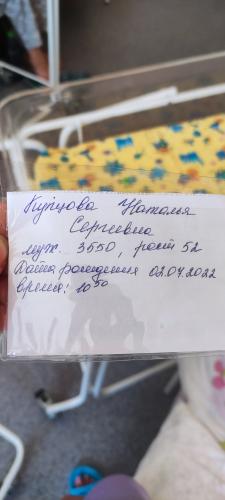 Купцова Наталья
Сергеевна
муж. 3550, рост 52
Дата рождения 02.04.2022
время: 10 50